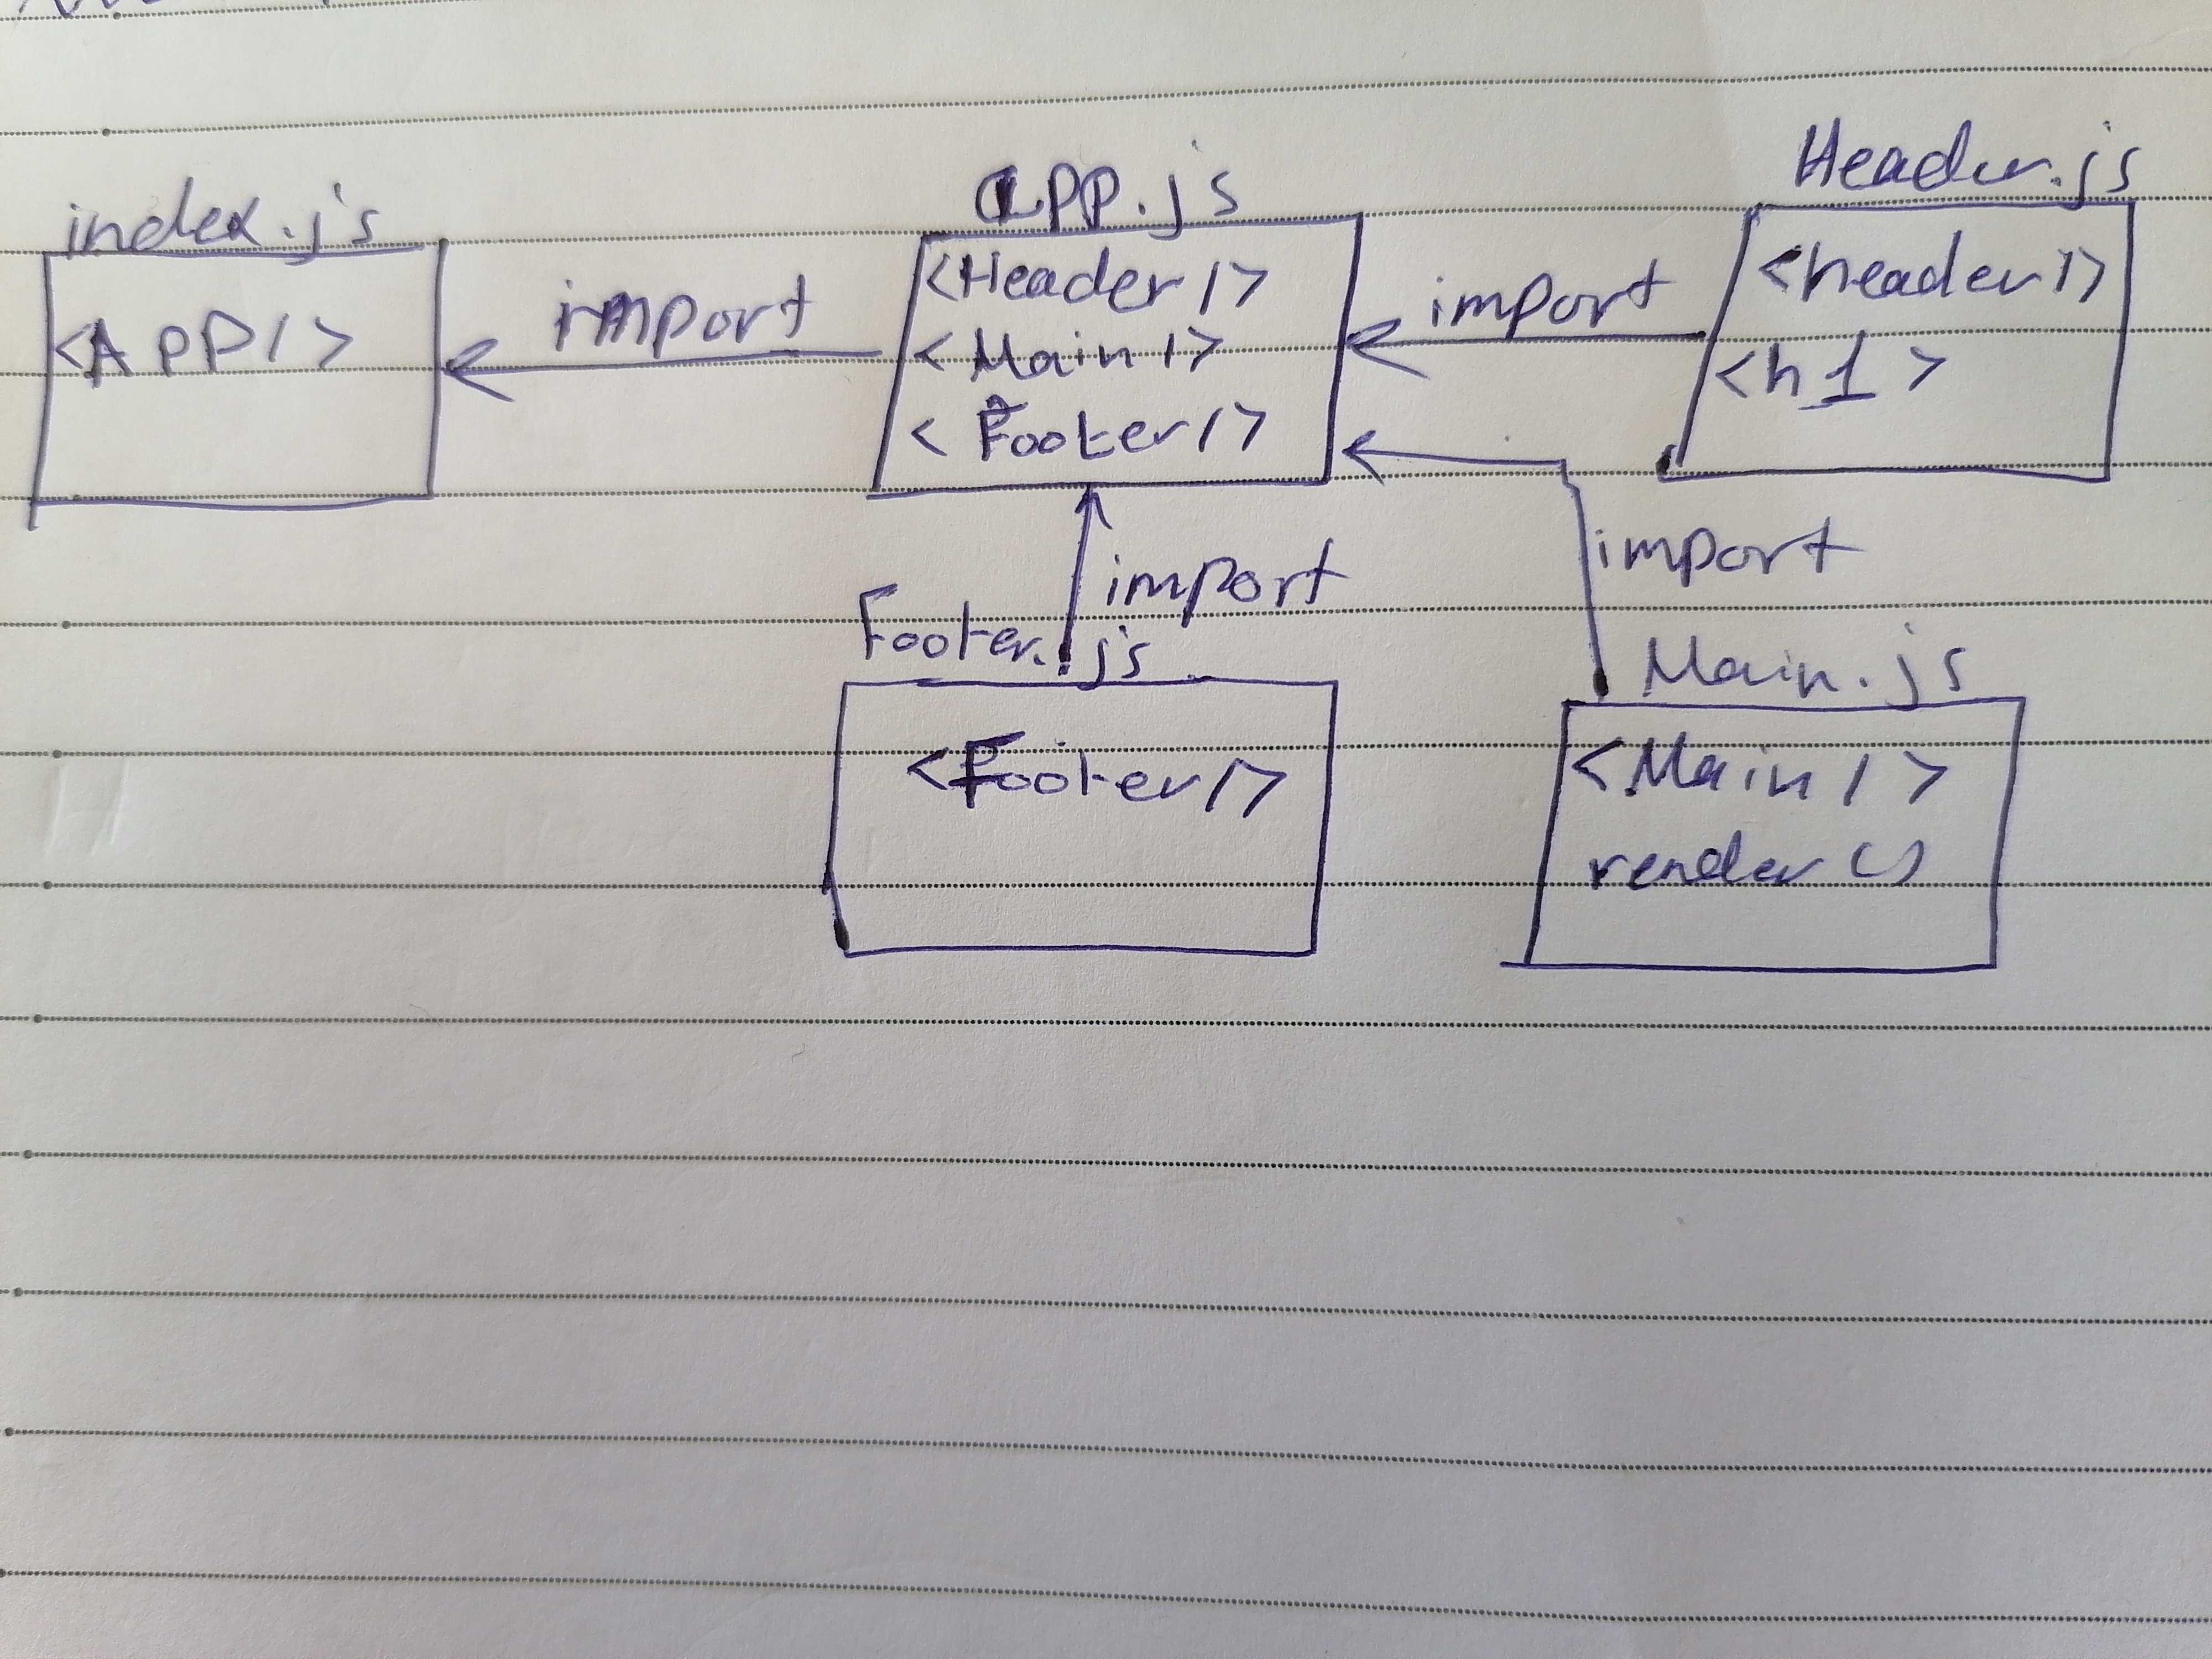 index.js
<App/>
import
app.js
<Header/>
<Main/>
<Footer/>
import
Header.js
<header/>
<h1>
import
Footer.js
<Footer/>
import
Main.js
<Main/>
render()